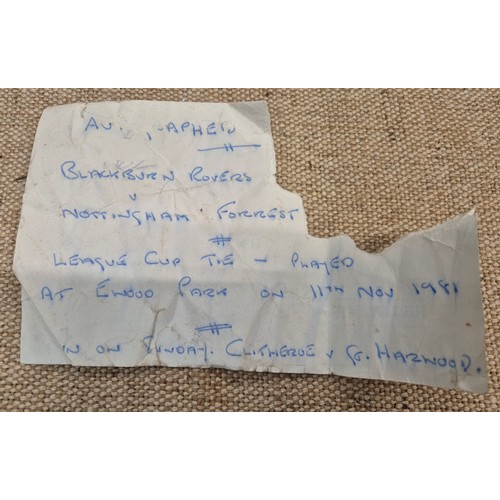 BLACKBURN ROVERS
v
NOTTINGHAM FORREST
LEAGUE CUP TIE - PLAYED
AT EWOOD PARK ON 11TH NOV 1981
IN ON SUNDAY. CLITHEROE v GT. HARWOOD.